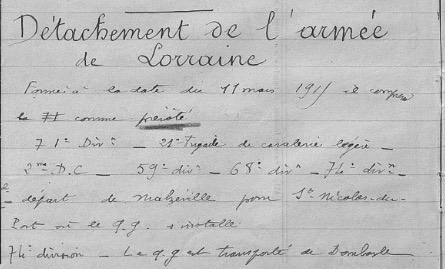 Détachement de l'armée
de Lorraine
Formé à la date du 11 mars 1915 il comprend
la # comme précité
71e Divon _ 21e brigade de cavalerie légère _
2me D.C _ 59e divon _ 68e divon _ 74e divon _
départ de Malzéville pour St Nicolas-du-
Port où le q.g. s'installe
74e division _ Le q.g est transporté de Dombasle